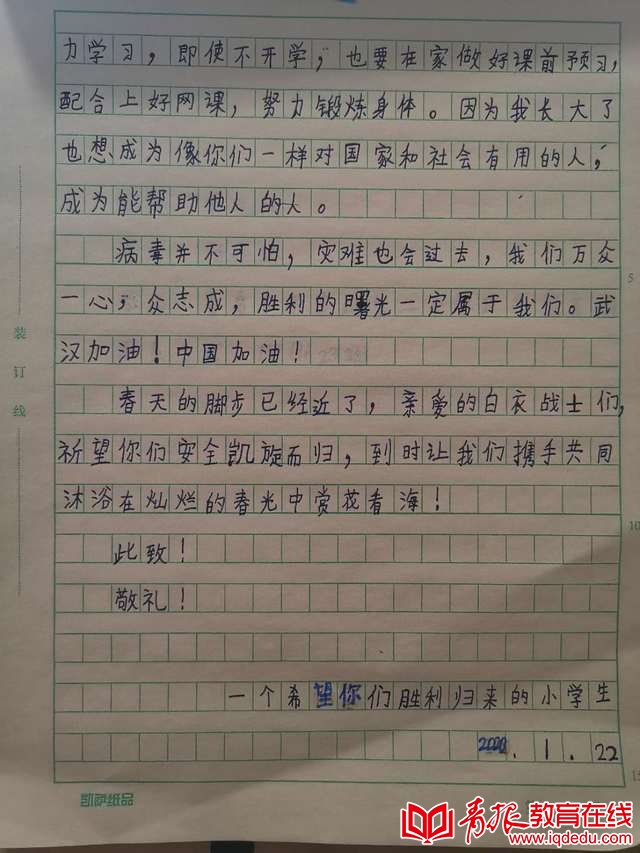 力学习，即使不开学，也要在家做好课前预习，
配合上好网课，努力锻炼身体。因为我长大了
也想成为像你们一样对国家和社会有用的人，
成为能帮助他人的人。
病毒并不可怕，灾难也会过去，我们万众
一心，众志成，胜利的曙光一定属于我们。武
汉加油！中国加油！
春天的脚步已经近了，亲爱的白衣战士们，
祈望你们安全凯旋而归，到时让我们携手共同
沐浴在灿烂的春光中赏花看海！
此致！
敬礼！
一个希望你们胜利归来的小学生
2020.1.22
装订线
5
10
15
凯萨纸品
青报教育在线
www.iqdedu.com